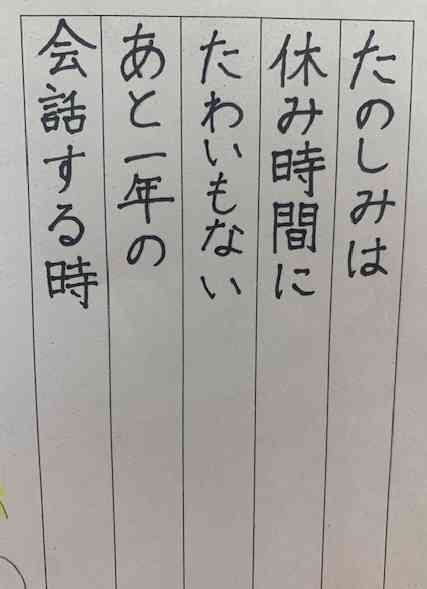 たのしみは
休み時間に
たわいもない
あと一年の
会話する時